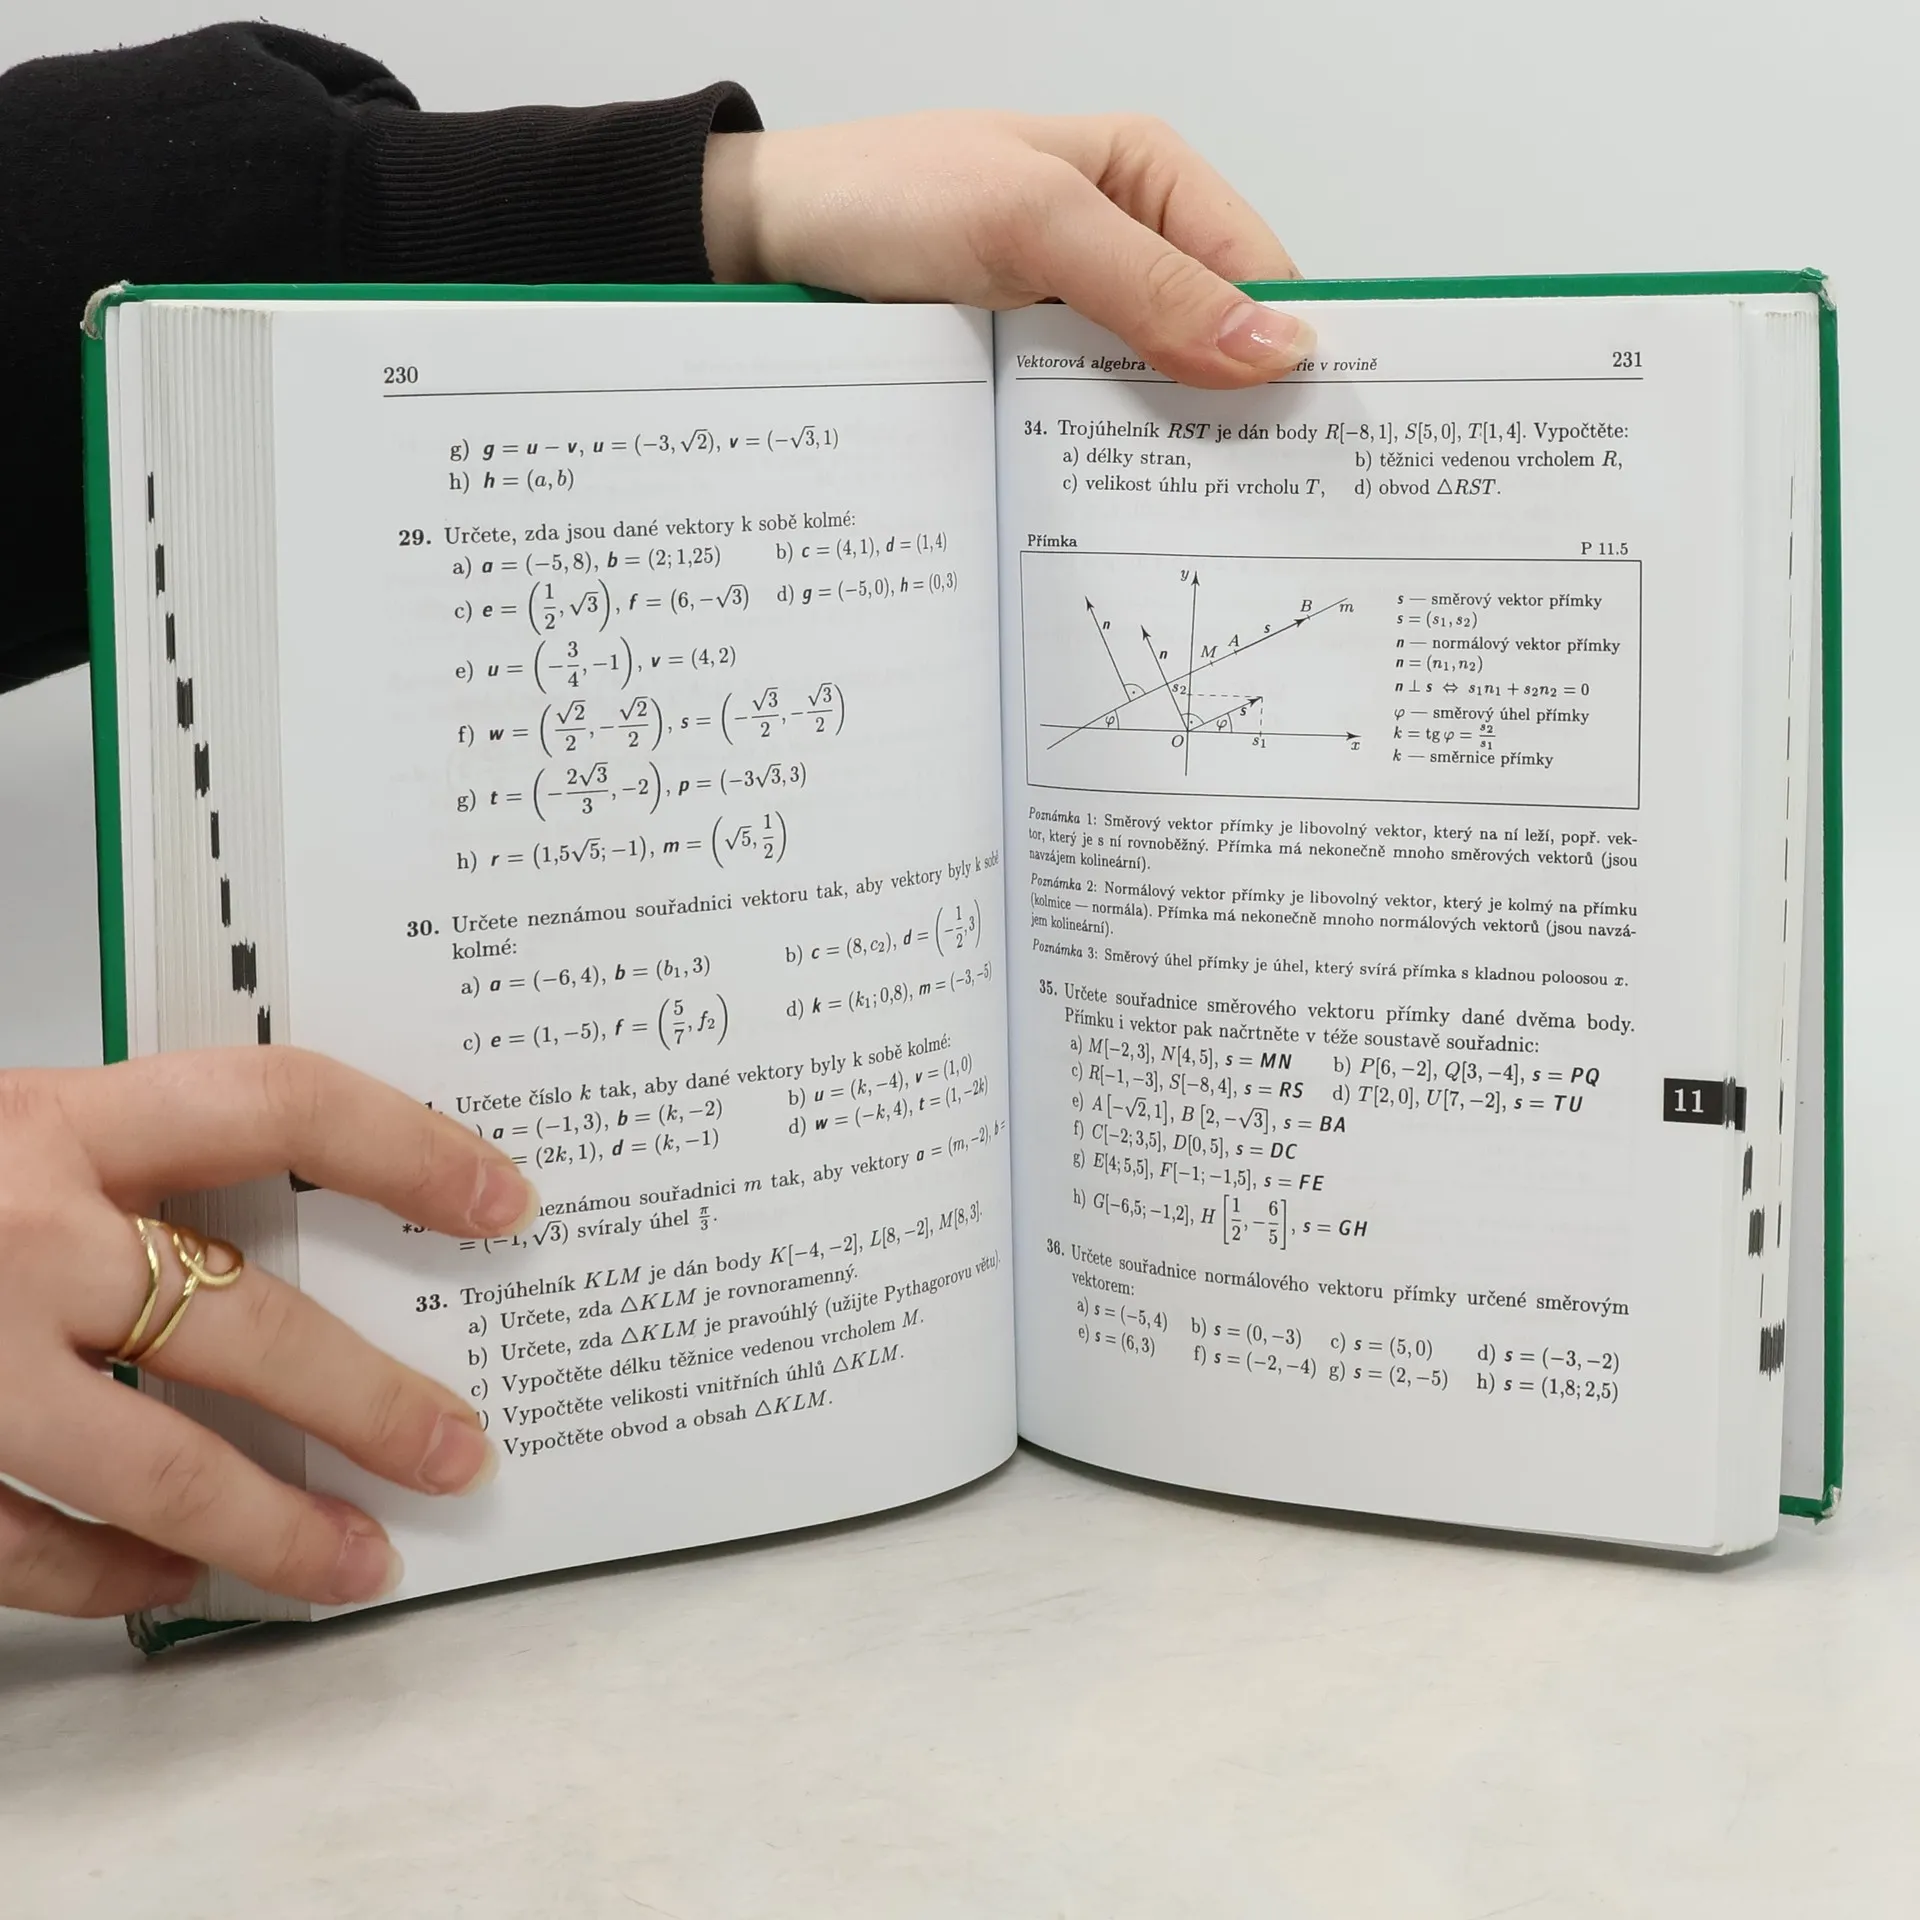 230
g) g = u − v, u = (−3, √2), v = (−√3, 1)
h) h = (a, b)
29. Určete, zda jsou dané vektory k sobě kolmé:
a) a = (−5, 8), b = (2; 1,25) b) c = (4, 1), d = (1, 4)
c) e = (1/2, √3), f = (6, −√3) d) g = (−5, 0), h = (0, 3)
e) u = (−3/4, −1), v = (4, 2)
f) w = (√2/2, −√2/2), s = (−√3/2, −√3/2)
g) t = (−2√3/3, −2), p = (−3√3, 3)
h) r = (1,5√5; −1), m = (√5, 1/2)
30. Určete neznámou souřadnici vektoru tak, aby vektory byly k sobě
kolmé:
a) a = (−6, 4), b = (b₁, 3) b) c = (8, c₂), d = (−1/2, 3)
c) e = (1, −5), f = (5/7, f₂) d) k = (k₁; 0,8), m = (−3, −5)
Určete číslo k tak, aby dané vektory byly k sobě kolmé:
a = (−1, 3), b = (k, −2) b) u = (k, −4), v = (1, 0)
= (2k, 1), d = (k, −1) d) w = (−k, 4), t = (1, −2k)
souřadnici m tak, aby vektory a = (m, −2), b =
= (−1, √3) svíraly úhel π/3.
33. Trojúhelník KLM je dán body K[−4, −2], L[8, −2], M[8, 3].
a) Určete, zda △KLM je rovnoramenný.
b) Určete, zda △KLM je pravoúhlý (užijte Pythagorovu větu).
c) Vypočtěte délku těžnice vedenou vrcholem M.
) Vypočtěte velikosti vnitřních úhlů △KLM.
Vypočtěte obvod a obsah △KLM.
Vektorová algebra v rovině 231
34. Trojúhelník RST je dán body R[−8, 1], S[5, 0], T[1, 4]. Vypočtěte:
a) délky stran, b) těžnici vedenou vrcholem R,
c) velikost úhlu při vrcholu T, d) obvod △RST.
Přímka P 11.5
y
n
n
M A
s
B
m
s₂
φ
s
φ
O
s₁
x
s — směrový vektor přímky
s = (s₁, s₂)
n — normálový vektor přímky
n = (n₁, n₂)
n ⊥ s ⇔ s₁n₁ + s₂n₂ = 0
φ — směrový úhel přímky
k = tg φ = s₂/s₁
k — směrnice přímky
Poznámka 1: Směrový vektor přímky je libovolný vektor, který na ní leží, popř. vek-
tor, který je s ní rovnoběžný. Přímka má nekonečně mnoho směrových vektorů (jsou
navzájem kolineární).
Poznámka 2: Normálový vektor přímky je libovolný vektor, který je kolmý na přímku
(kolmice — normála). Přímka má nekonečně mnoho normálových vektorů (jsou navzá-
jem kolineární).
Poznámka 3: Směrový úhel přímky je úhel, který svírá přímka s kladnou poloosou x.
35. Určete souřadnice směrového vektoru přímky dané dvěma body.
Přímku i vektor pak načrtněte v téže soustavě souřadnic:
a) M[−2, 3], N[4, 5], s = MN b) P[6, −2], Q[3, −4], s = PQ
c) R[−1, −3], S[−8, 4], s = RS d) T[2, 0], U[7, −2], s = TU
e) A[−√2, 1], B[2, −√3], s = BA
f) C[−2; 3,5], D[0, 5], s = DC
g) E[4; 5,5], F[−1; −1,5], s = FE
h) G[−6,5; −1,2], H[1/2, −6/5], s = GH
11
36. Určete souřadnice normálového vektoru přímky určené směrovým
vektorem:
a) s = (−5, 4) b) s = (0, −3) c) s = (5, 0) d) s = (−3, −2)
e) s = (6, 3) f) s = (−2, −4) g) s = (2, −5) h) s = (1,8; 2,5)